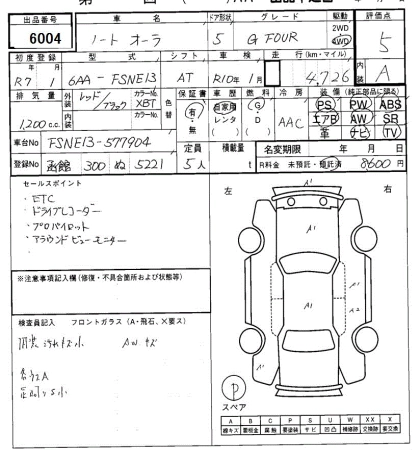 出品番号 車名 ドア形状 グレード 駆動 評価点
6004 ノート オーラ 5 G FOUR 2WD 4WD 5
初度登録 型式 シフト 車検 走行(km・マイル) 内装
R7年1月 6AA-FSNE13 AT R10年1月 4,726 A
排気量 外装 カラーNo. 色替 保証書 車歴 燃料 冷房 装備(純正部品に限る)
1,200cc レッド/ブラック XBT 有・無 自家用 レンタ ( ) G D ( ) AAC PS PW ABS
内装 カラーNo. エアB AW SR
革 ナビ TV
車台No FSNE13-577904 定員 積載量 名変期限 年 月 日
登録No 函館 300 ぬ 5221 5人 t R料金 未預託・預託済 8600円
セールスポイント
・ETC
・ドライブレコーダー
・プロパイロット
・アラウンドビューモニター
左 右
※注意事項記入欄(修復・不具合箇所および状態等)
検査員記入 フロントガラス(A・飛石、X要ス)
A1
A1 A1
A2
A1
P
スペア
A B C P S U W X XX
線キズ 要板金 腐触 要塗装 サビ 凹凸 補修跡 交換跡 要交換